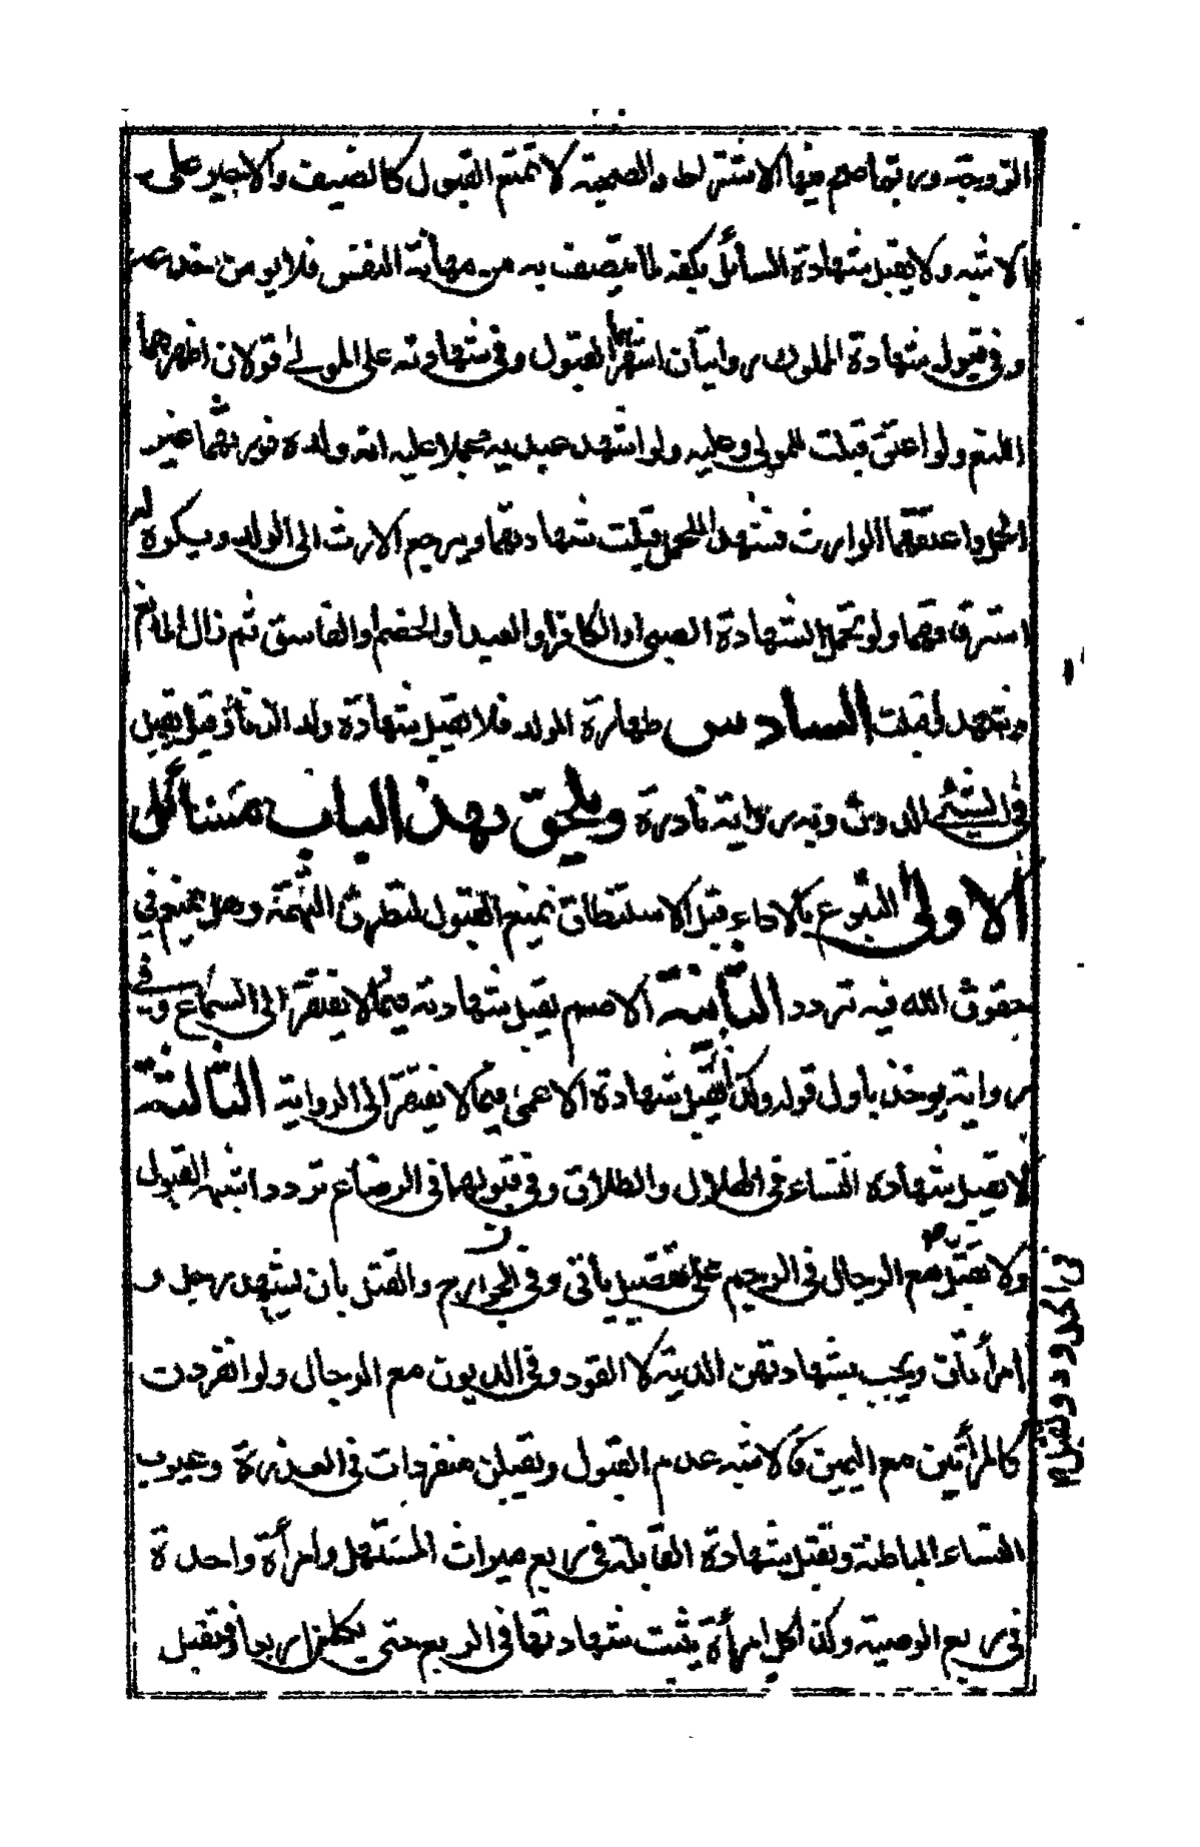 الزوجة وربما صح فيها الاشتراط والصحبة لا تمنع القبول كالضيف والاجير على
الاشبه ولا يقبل شهادة السائل بكفه لما يتصف به من مهانة النفس فلا يومن خدعه
وفي قبول شهادة المملوك روايتان اشهرهما القبول وفي شهادته على المولى قولان اظهرهما
المنع ولو اعتق قبلت للمولى وعليه ولو اشهد عبديه بحملها عليه انه ولده فورثهما غير
الحمل واعتقهما الوارث فشهدا للحمل قبلت شهادتهما ويرجع الارث الى الولد ويكره له
استرقاقهما ولو تحمل الشهادة الصبي او الكافر او العبد او الخصم او الفاسق ثم زال المانع
وشهدوا قبلت السادس طهارة المولد فلا تقبل شهادة ولد الزنا وقيل يقبل
في الشئ الدون وبه رواية نادرة ويلحق بهذا الباب مسائل
الاولى التبرع بالاداء قبل الاستنطاق يمنع القبول لتطرق التهمة وهل يمنع في
حقوق الله فيه تردد الثانية الاصم تقبل شهادته فيما لا يفتقر الى السماع وفي
رواية يوخذ باول قوله وكذا تقبل شهادة الاعمى فيما لا يفتقر الى الرواية الثالثة
لا تقبل شهادة النساء في الهلال والطلاق وفي قبولها في الرضاع تردد اشبهه القبول
ولا تقبل مع الرجال في الرجم على تفصيل ياتي وفي الجراح والقتل بان يشهد رجل و
امرأتان ويجب بشهادتهن الدية لا القود وفي الديون مع الرجال ولو انفردت
كالمرأتين مع اليمين فالاشبه عدم القبول وتقبلن منفردات في العذرة وعيوب
النساء الباطنة وتقبل شهادة القابلة في ربع ميراث المستهل وامرأة واحدة
في ربع الوصية وكذا كل امرأة يثبت شهادتها في الربع حتى يكملن اربعا فتقبل
في الحدود وتقبل